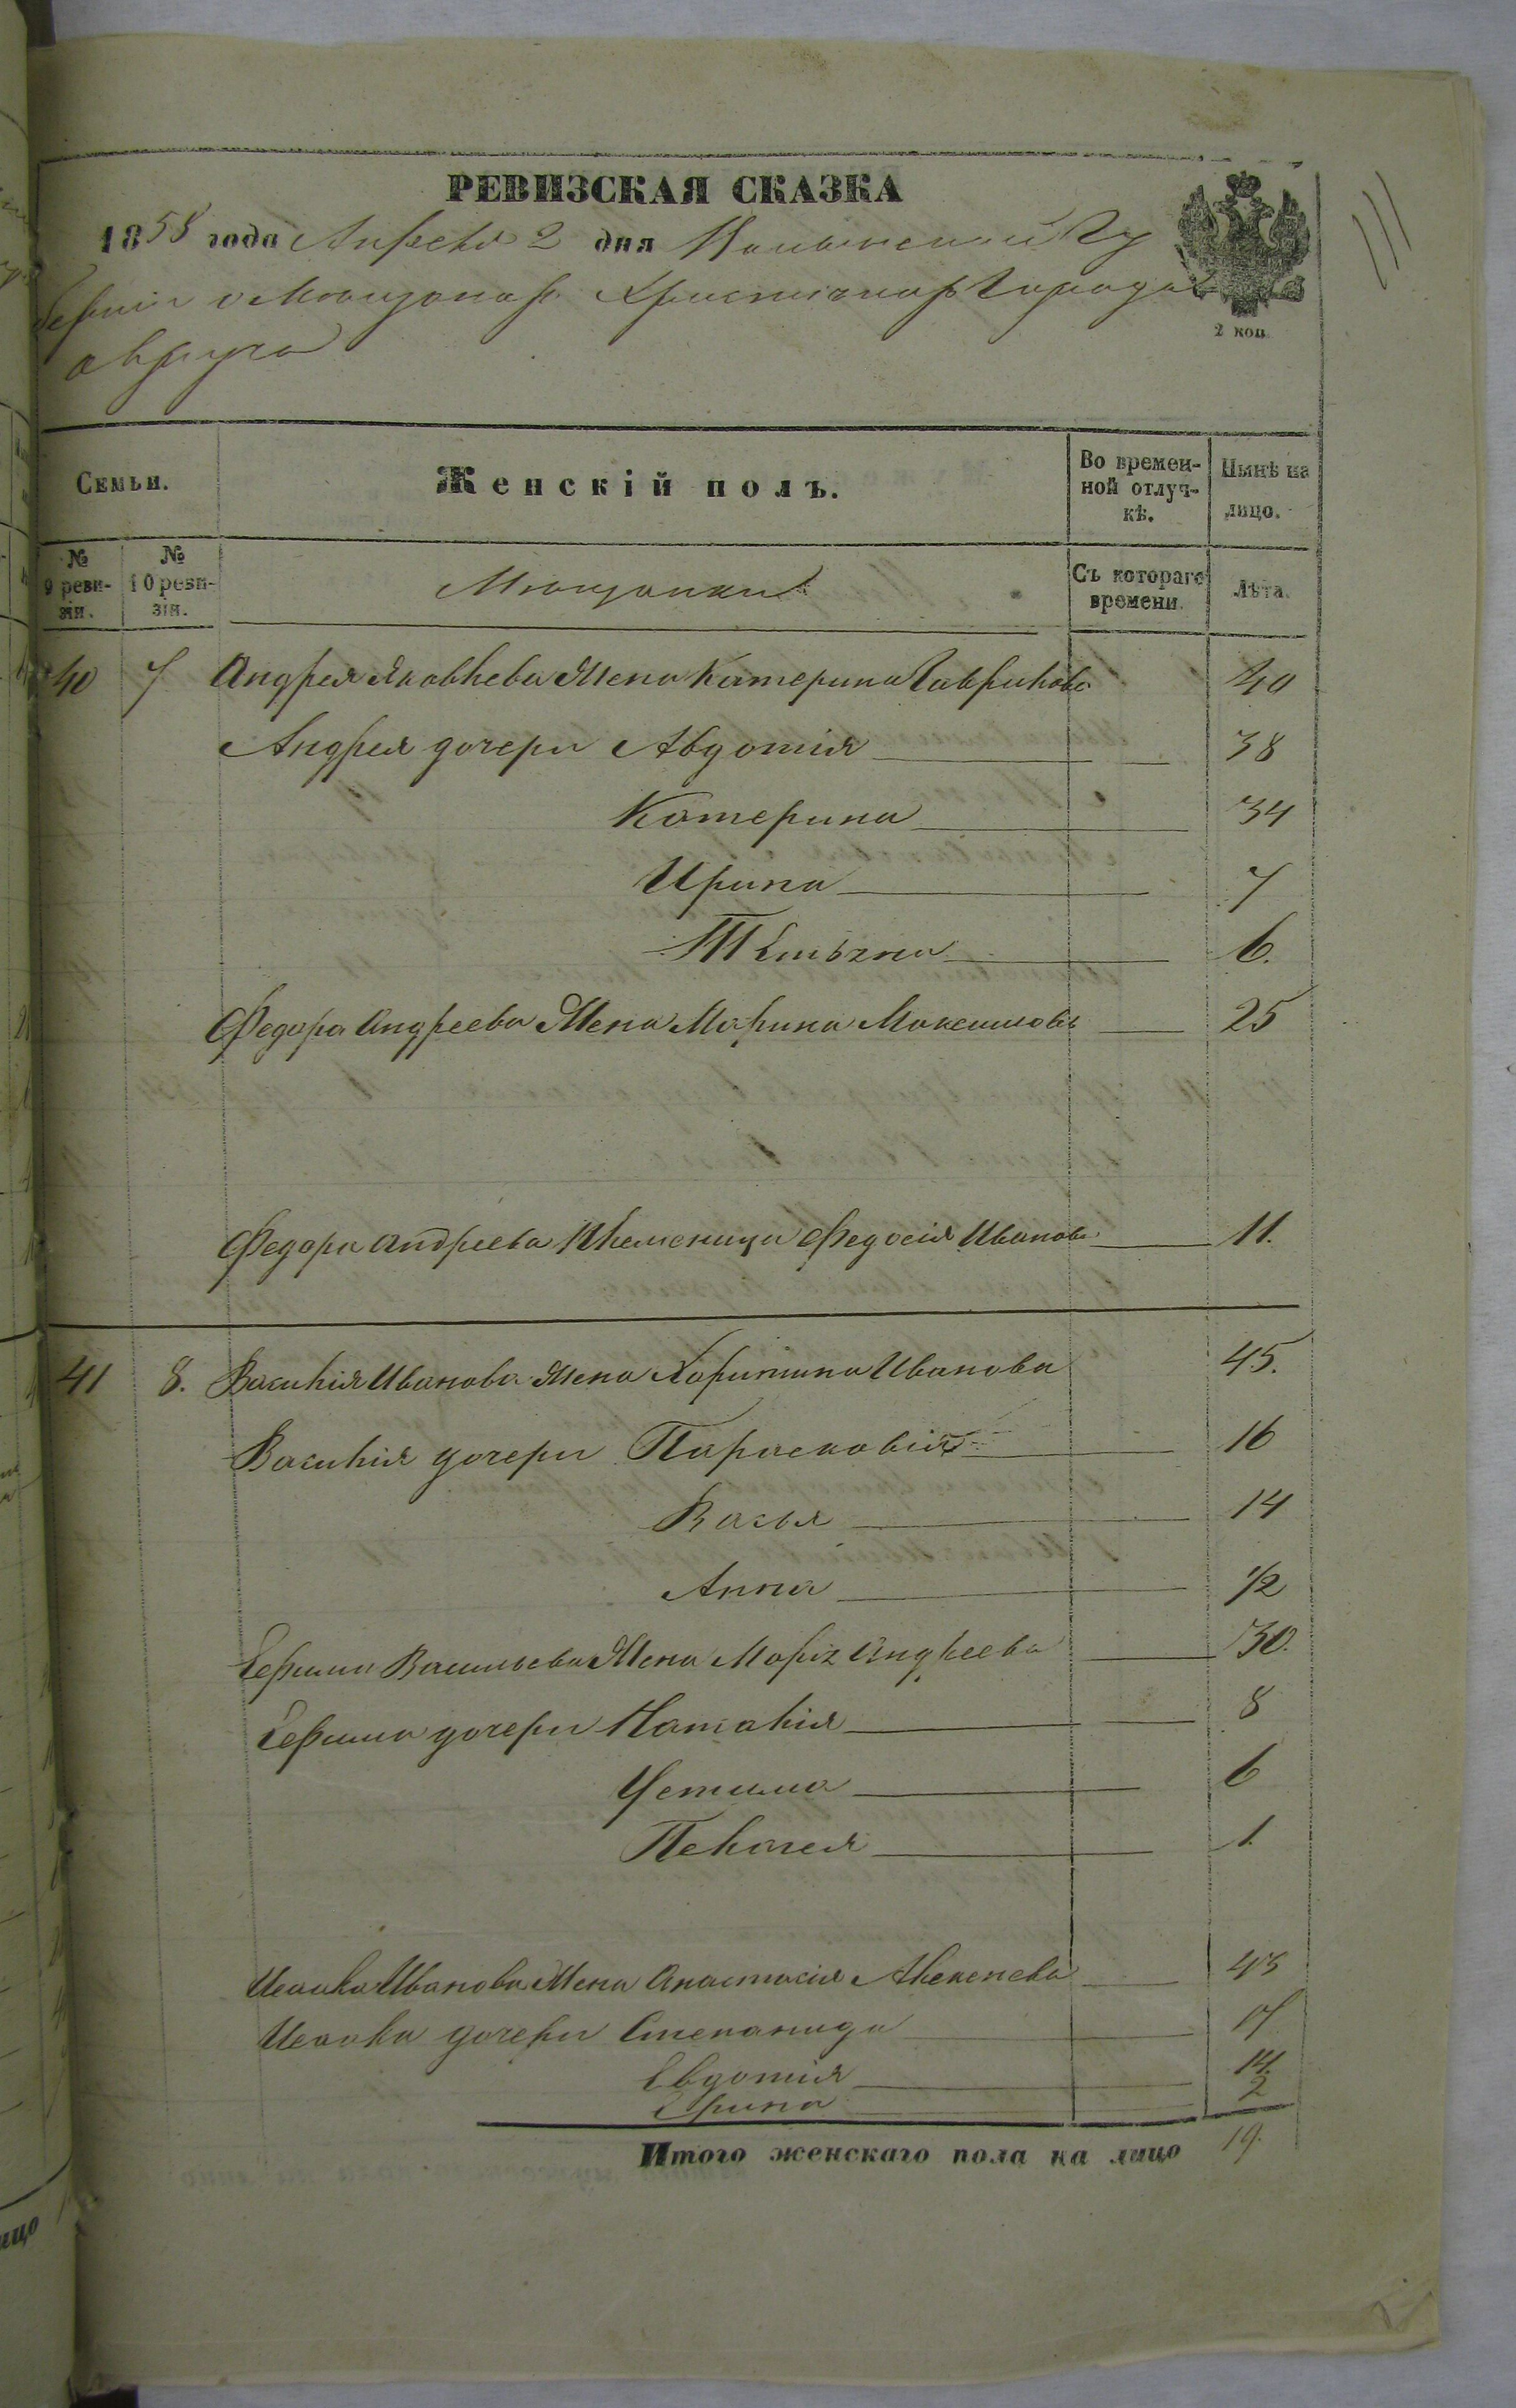 РЕВИЗСКАЯ СКАЗКА
1858 года Апреля 2 дня Волынской Гу
берніи о Мющанах Христіянах Города
овруча
2 коп.
Семьи.
Женскій полъ.
Во времен-
ной отлуч-
кѣ.
Нынѣ на
лицо.
№
9 реви-
зіи.
№
10 реви-
зіи.
Мющанки
Съ котораго
времени.
Лѣта.
40 7 Андрея Яковлева Жена Катерина Гаврилова 40
Андрея дочери Авдотія 38
Катерина 34
Ирина 7
6.
Федора Андреева Жена Марина Максимова 25
Федора Андреева Племеница Федосія Иванова 11.
41 8. Василія Иванова Жена Харитина Иванова 45.
Василія дочери Парасковія 16
Васья 14
Анна 1/2
Ефима Васильева Жена Марія Андреева 30.
Ефима дочери Наталія 8
Устима 6
Пелагея 1
Исаака Иванова Жена Анастасія Алексеева 45
Исаака дочери Степанида 17
Евдотія 14.
Ирина 2
Итого женскаго пола на лицо 19.